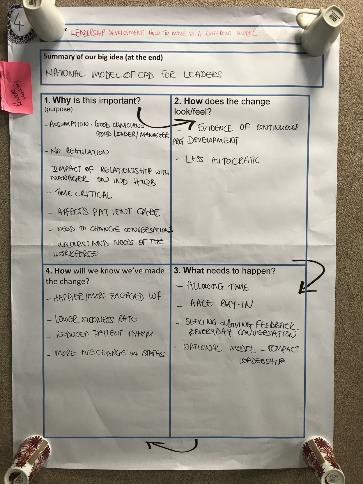 4
LEADERSHIP DEVELOPMENT HOW TO MOVE TO A DIFFERENT MODEL?
Summary of our big idea (at the end)
NATIONAL MODEL OF CPD FOR LEADERS
1. Why is this important?
(purpose)
- ASSUMPTION - GOOD CLINICIANS
GOOD LEADER/MANAGER
- NO REGULATION
IMPACT OF RELATIONSHIP WITH
MANAGER ON IND
- TIME CRITICAL
- AFFECTS PATIENT CARE
- NEED TO CHANGE CONVERSATION
AND NEEDS OF THE
WORKFORCE
2. How does the change
look/feel?
- EVIDENCE OF CONTINUOUS
PROF DEVELOPMENT
- LESS AUTOCRATIC
4. How will we know we've made
the change?
- HAPPIER/MORE ENGAGED WF
- LOWER SICKNESS RATE
- REDUCED PATIENT HARM
- MORE
3. What needs to happen?
- ALLOWING TIME
- BUY-IN
- SEEKING + GIVING FEEDBACK
EVERYDAY CONVERSATION
NATIONAL MODEL - COMPACT
LEADERSHIP